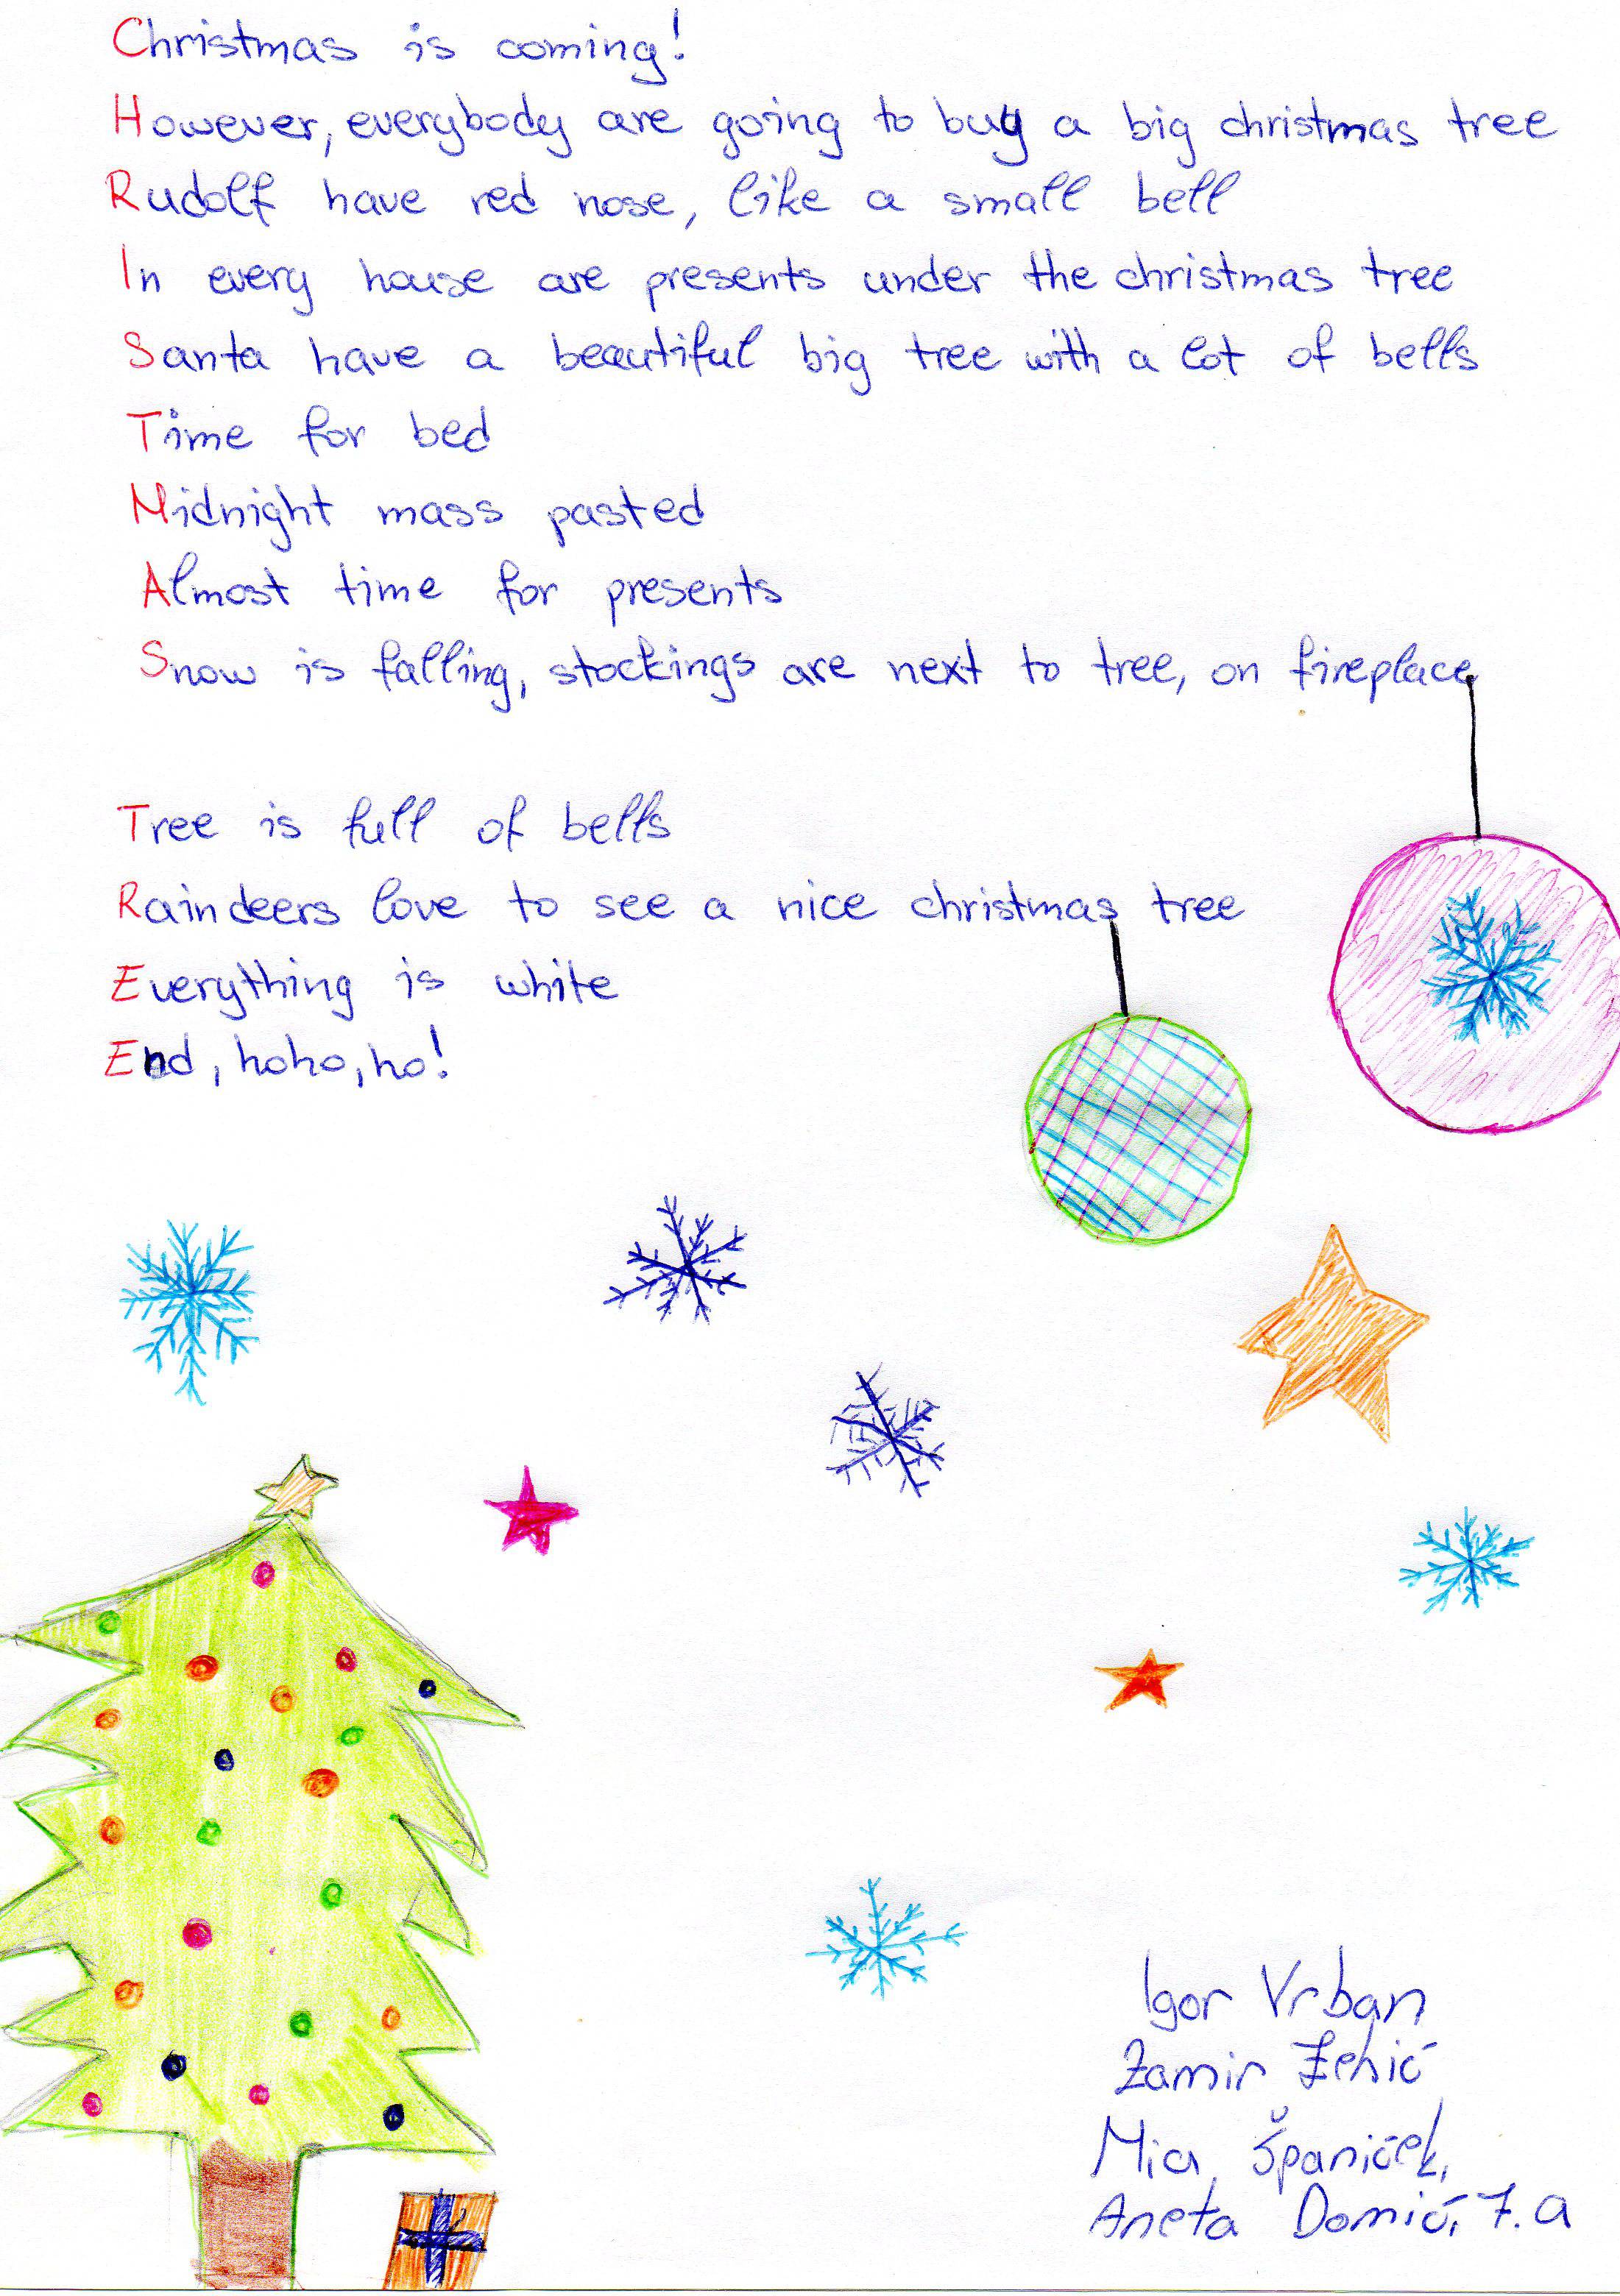 Christmas is coming!
However, everybody are going to buy a big christmas tree
Rudolf have red nose, like a small bell
In every house are presents under the christmas tree
Santa have a beautiful big tree with a lot of bells
Time for bed
Midnight mass pasted
Almost time for presents
Snow is falling, stockings are next to tree, on fireplace
Tree is full of bells
Raindeers love to see a nice christmas tree
Everything is white
End, hoho, ho!
Igor Vrban
Zamir Zehić
Mia Španiček,
Aneta Domić, 7.a